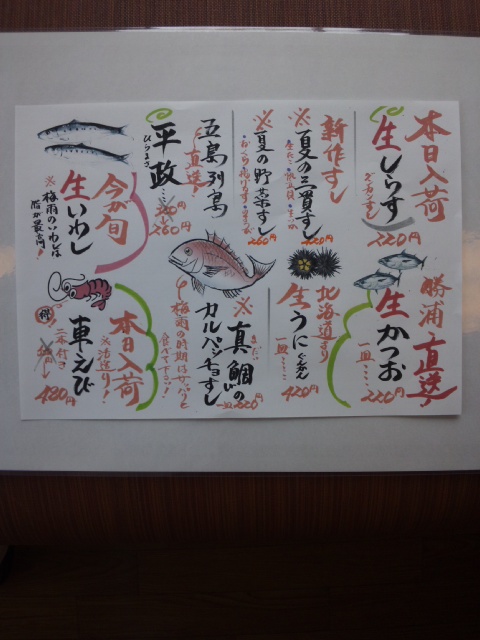 本日入荷
生しらす
220円
勝浦直送
生かつお
一皿‥‥
220円
新作すし
※夏の三貫すし
220円
※夏の野菜すし
260円
北海道より
生うに
ぐんかん
一皿‥‥
420円
五島列島
直送
平政‥‥
ひらまさ
260円
※真鯛の
カルパッチョすし
一皿220円
梅雨の時期はサッパリと
食べて下さい!
今が旬
生いわし
※梅雨のいわしは
脂が最高!
本日入荷
活造り!
車えび
得
二本付
420円